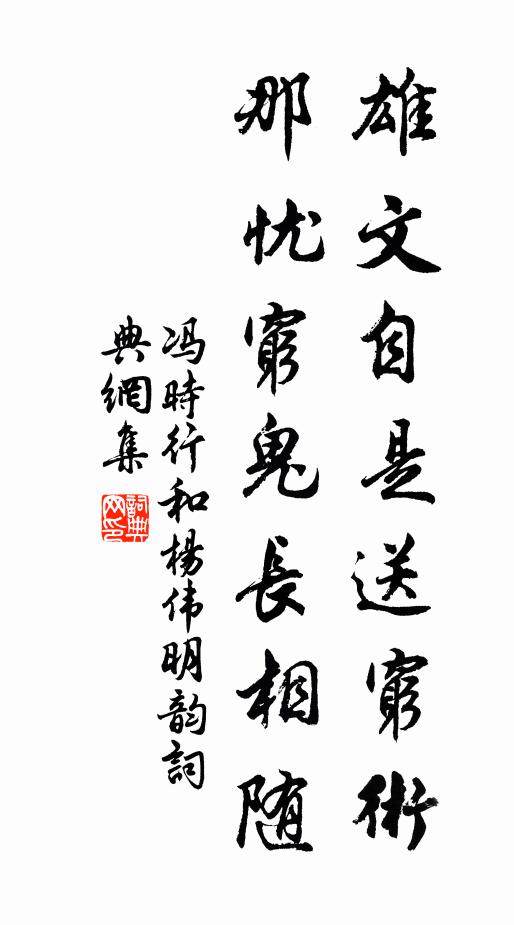 雄文自是送窮術
那忧窮鬼長相随
冯時行和楊伟明韵詞
典網集
詞典网印